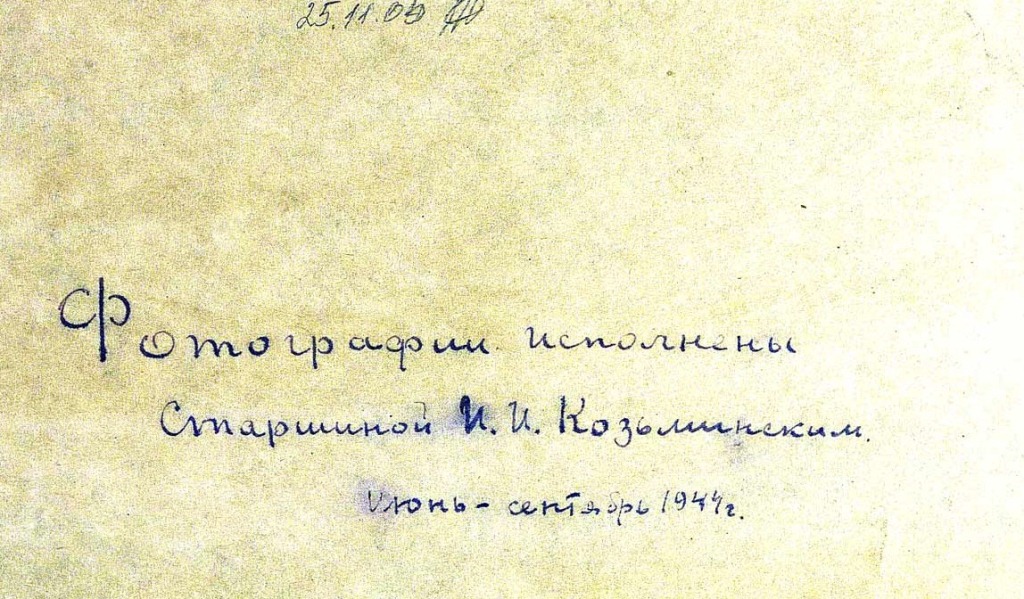 25.11.05
Фотографии исполнены
Старшиной И. И. Козьминским.
Июнь - сентябрь 1944г.